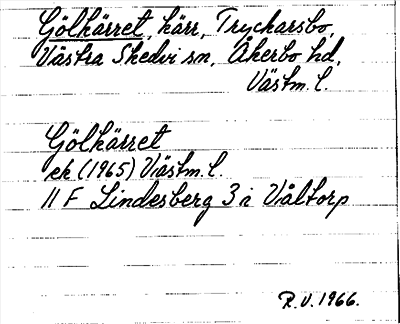 Gölkärret, kärr, Tryckarsbo,
Västra Skedvi sn, Åkerbo hd,
Västm. l.
Gölkärret
ek (1965) Västm. l.
11 F Lindesberg 3 i Våltorp
R.V. 1966.